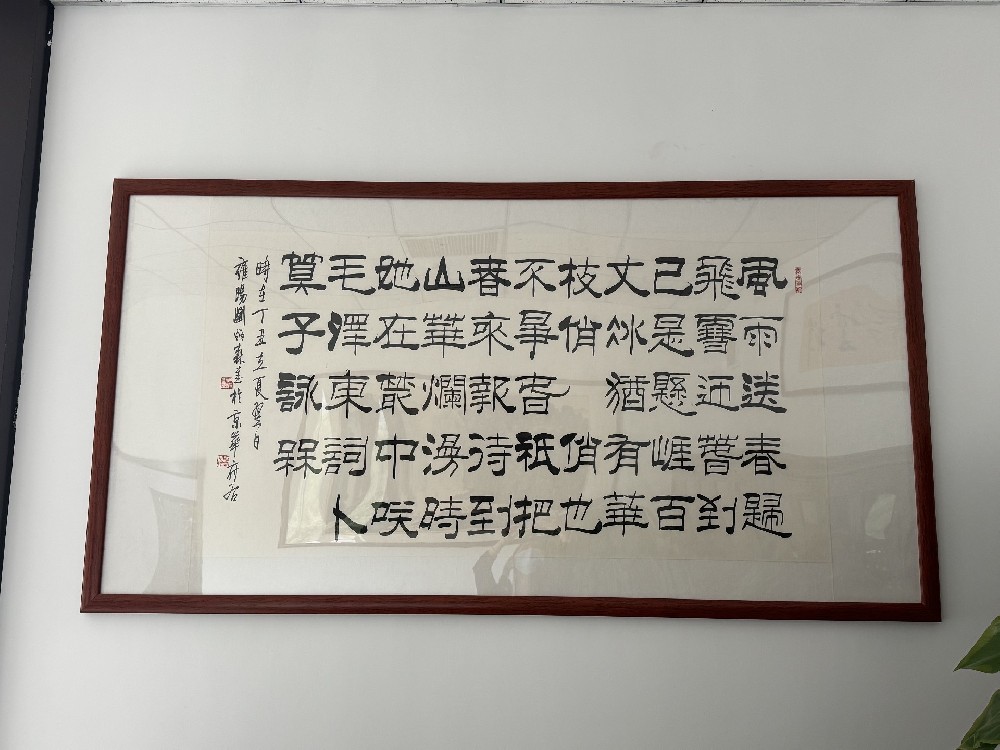 風雨送春歸
飛雪迎春到
已是懸崖百
丈冰猶有華
枝俏俏也
不爭春祇把
春來報待到
山華爛漫時
她在叢中咲
毛澤東詞卜
算子詠槑
時在丁丑立夏翌日
雍陽劉炳森書於京華